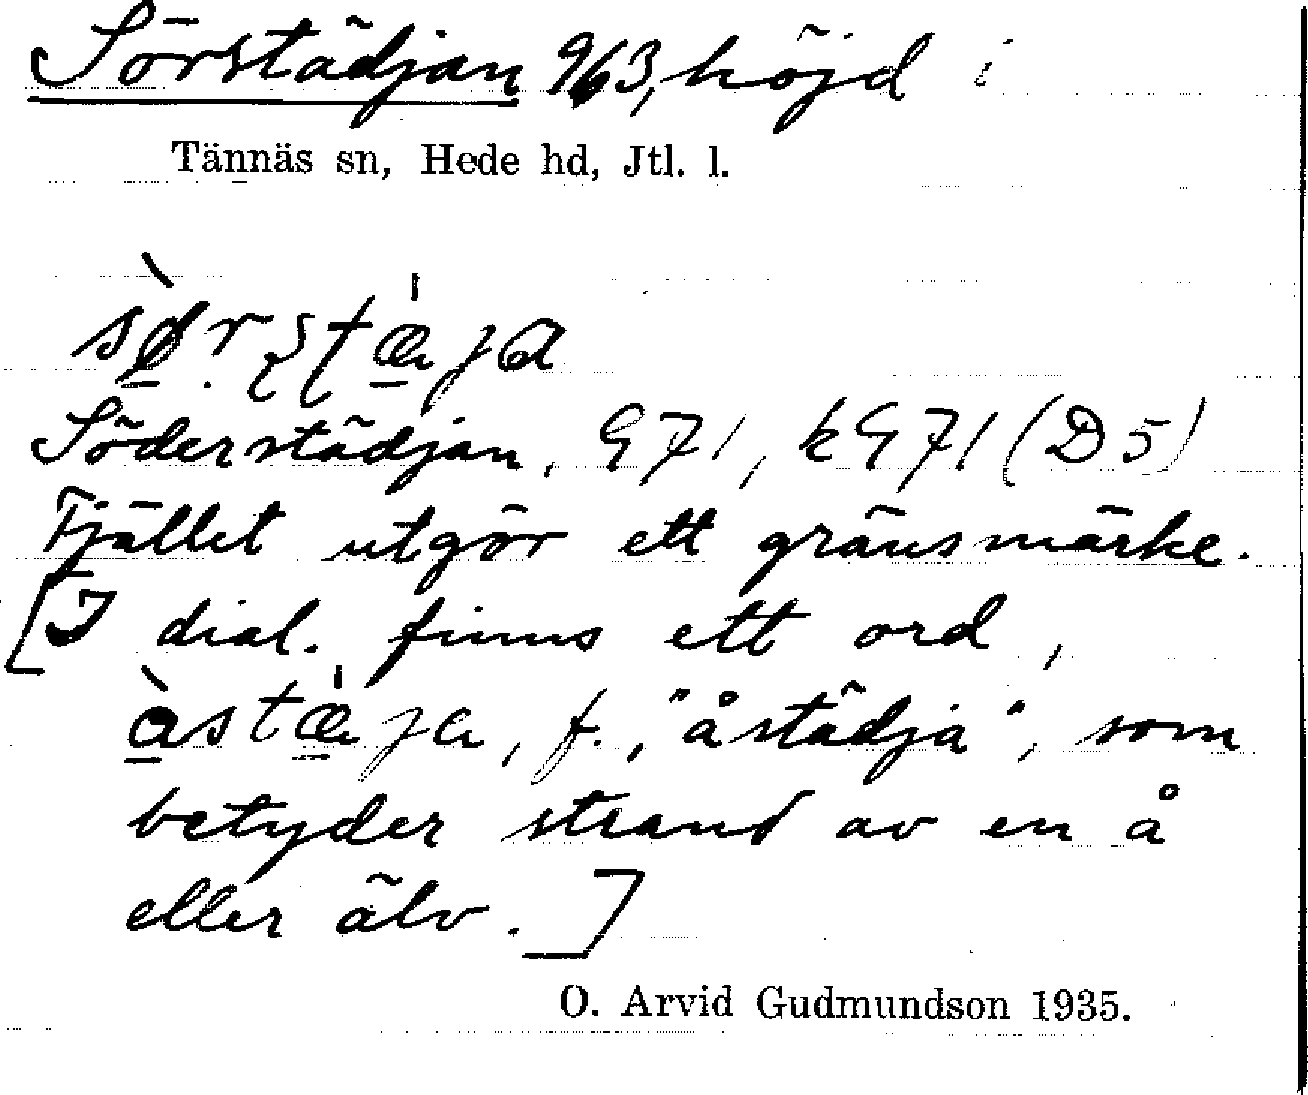 Sörstädjan 963, höjd i
Tännäs sn, Hede hd, Jtl. l.
Söderstädjan, G 71, kG 71 (D 5)
Fjället utgör ett gränsmärke.
[I dial. finns ett ord,
àstæ̀ja, f., "åstädja", som
betyder strand av en å
eller älv.]
O. Arvid Gudmundson 1935.